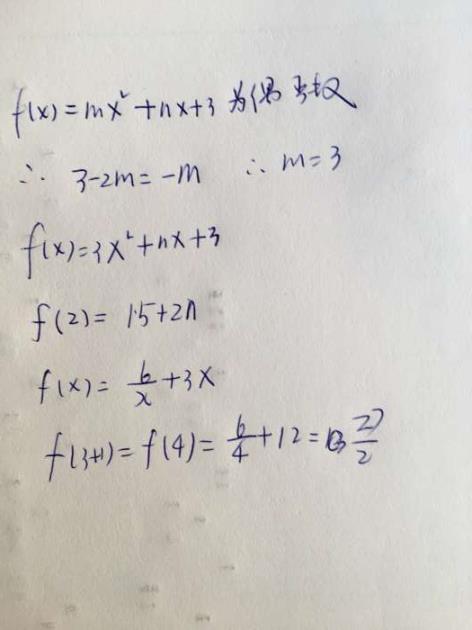 f(x)=mx²+nx+3 为偶函数
∴ 3-2m=-m ∴ m=3
f(x)=3x²+nx+3
f(2)= 15+2n
f(x)= 6/x +3x
f(3+1)=f(4)= 6/4 +12= 27/2